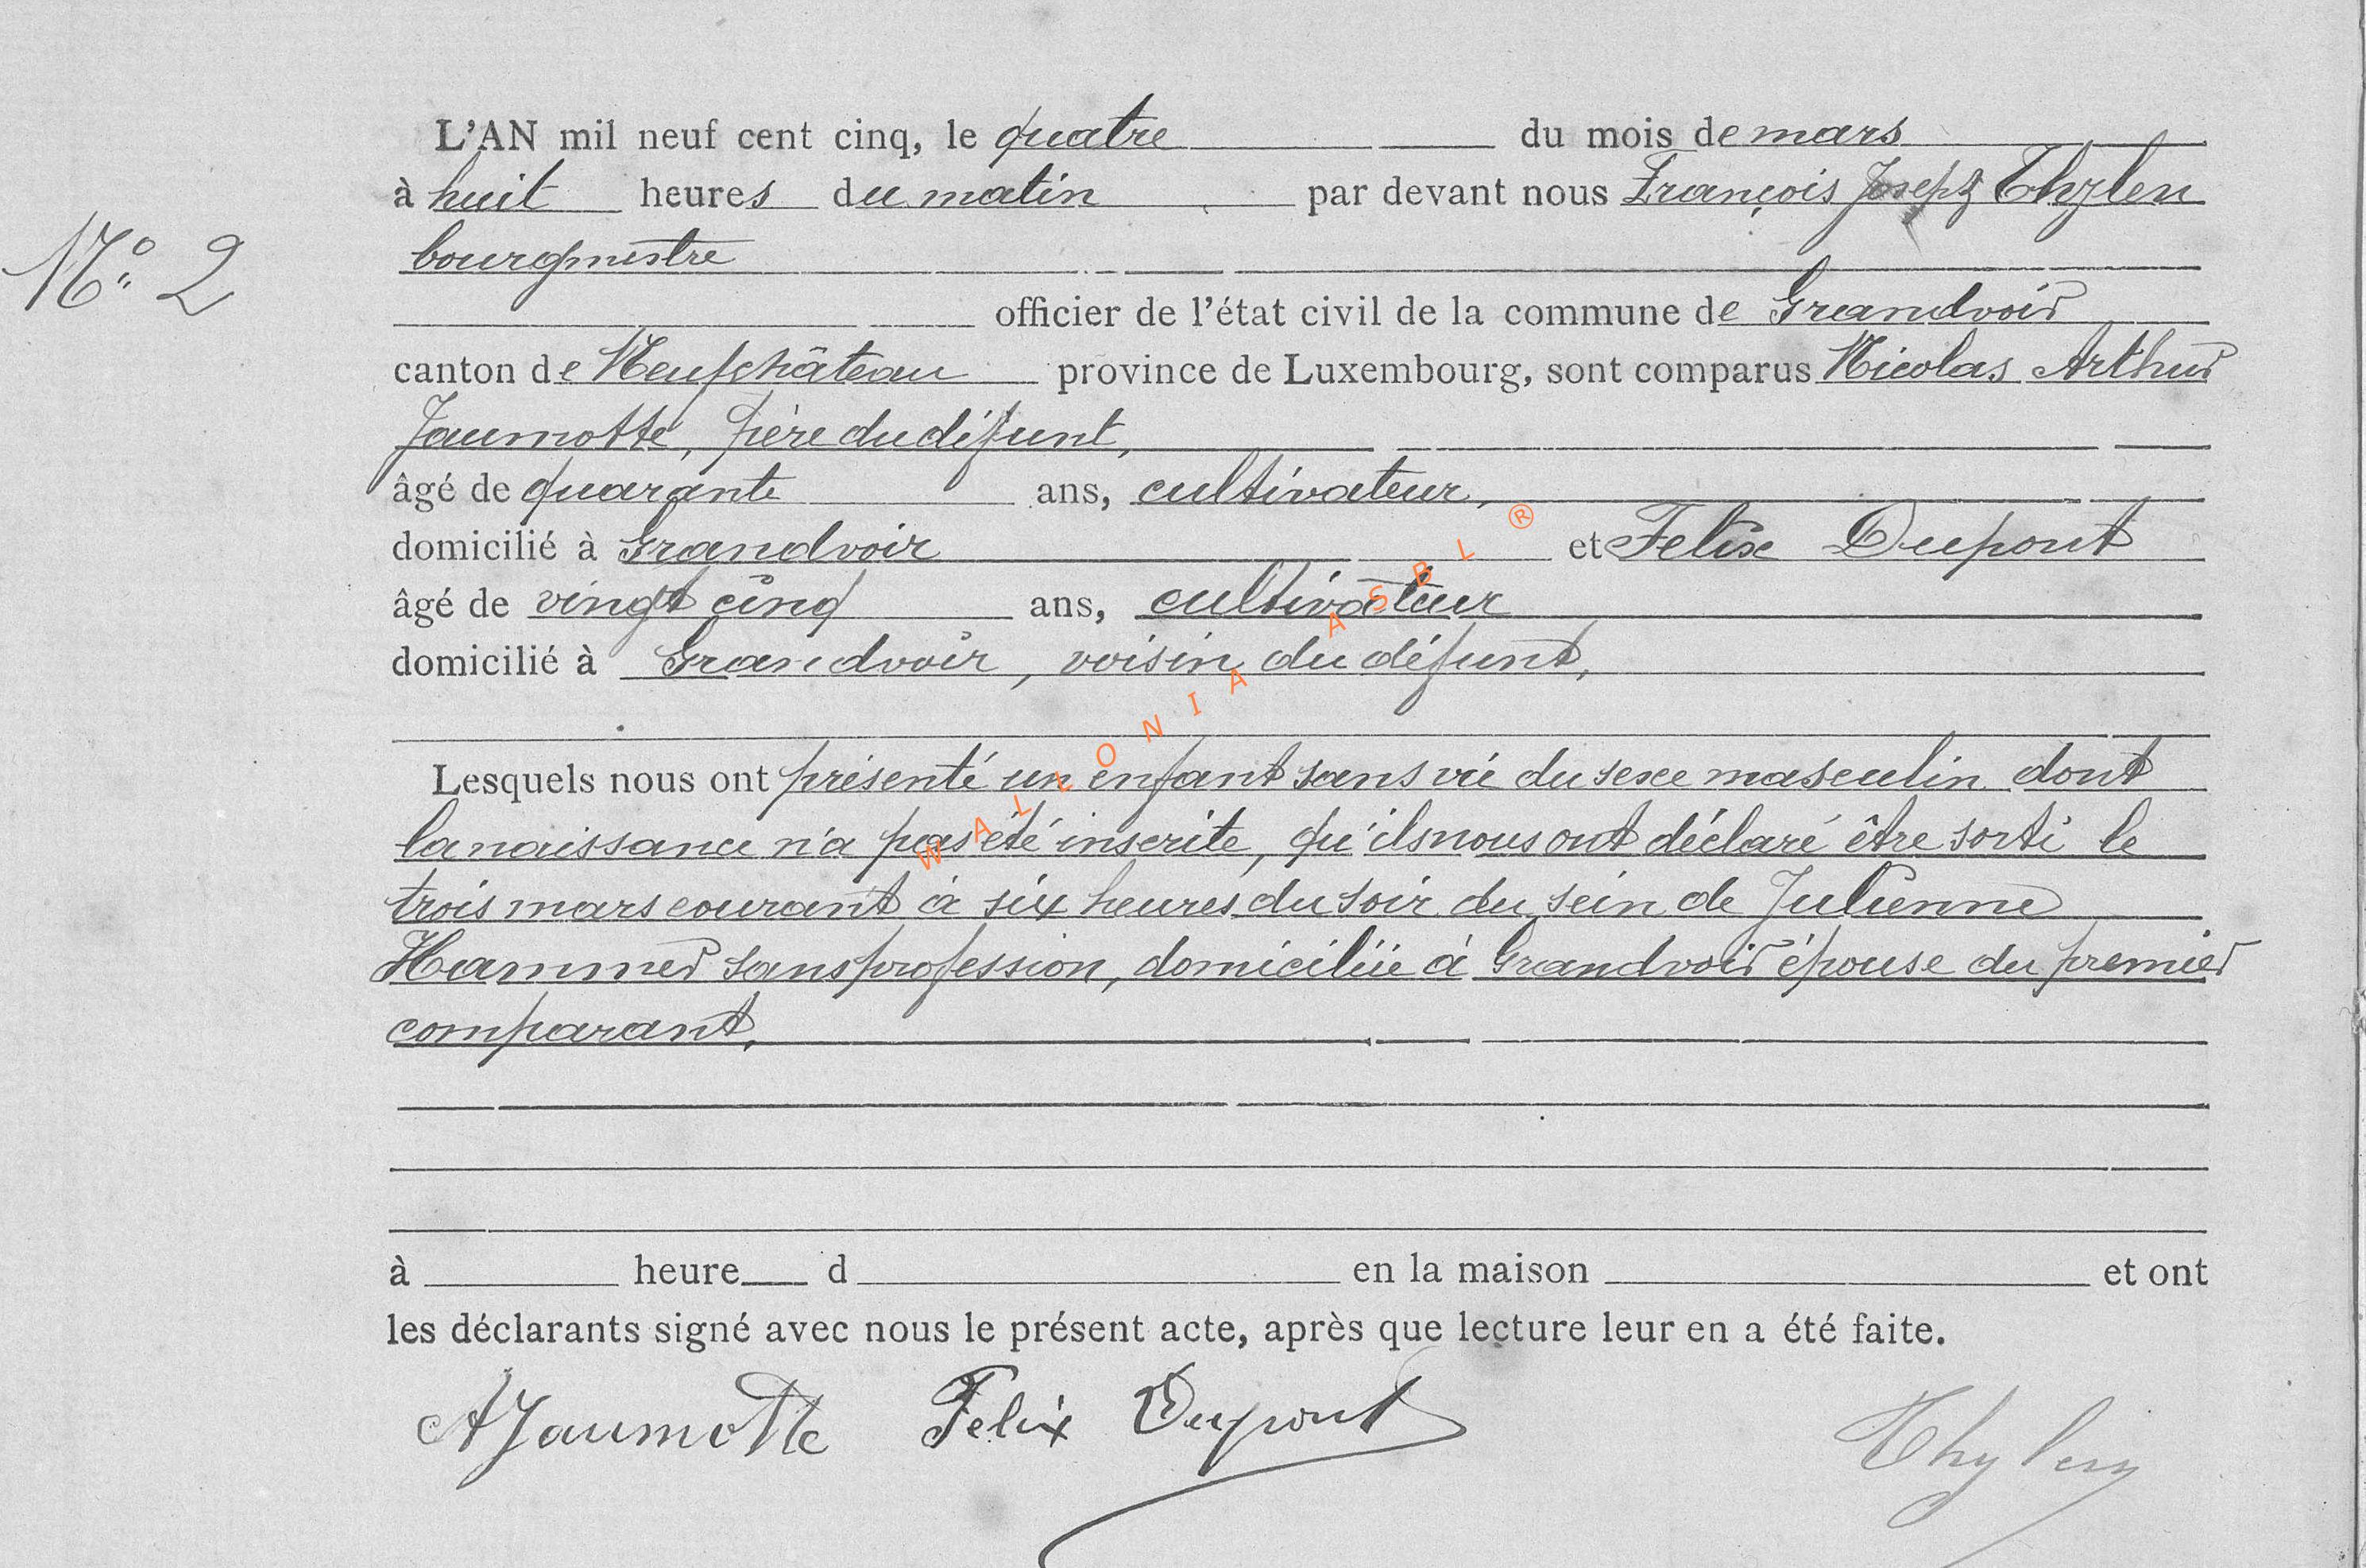 L'AN mil neuf cent cinq, le quatre du mois de mars
à huit heures du matin par devant nous François Joseph Thylen
bourgmestre
N° 2
officier de l'état civil de la commune de Grandvoir
canton de Neufchâteau province de Luxembourg, sont comparus Nicolas Arthur
Jaumotte, père du défunt,
âgé de quarante ans, cultivateur,
domicilié à Grandvoir et Felix Dupont
âgé de vingt cinq ans, cultivateur
domicilié à Grandvoir, voisin du défunt,
WALLONIA ASBL ®
Lesquels nous ont présenté un enfant sans vie du sexe masculin dont
la naissance n'a pas été inscrite, qu'ils nous ont déclaré être sorti le
trois mars courant à six heures du soir du sein de Julienne
Hammer sans profession, domiciliée à Grandvoir épouse du premier
comparant,
à heure d en la maison et ont
les déclarants signé avec nous le présent acte, après que lecture leur en a été faite.
AJaumotte Felix Dupont Thylen